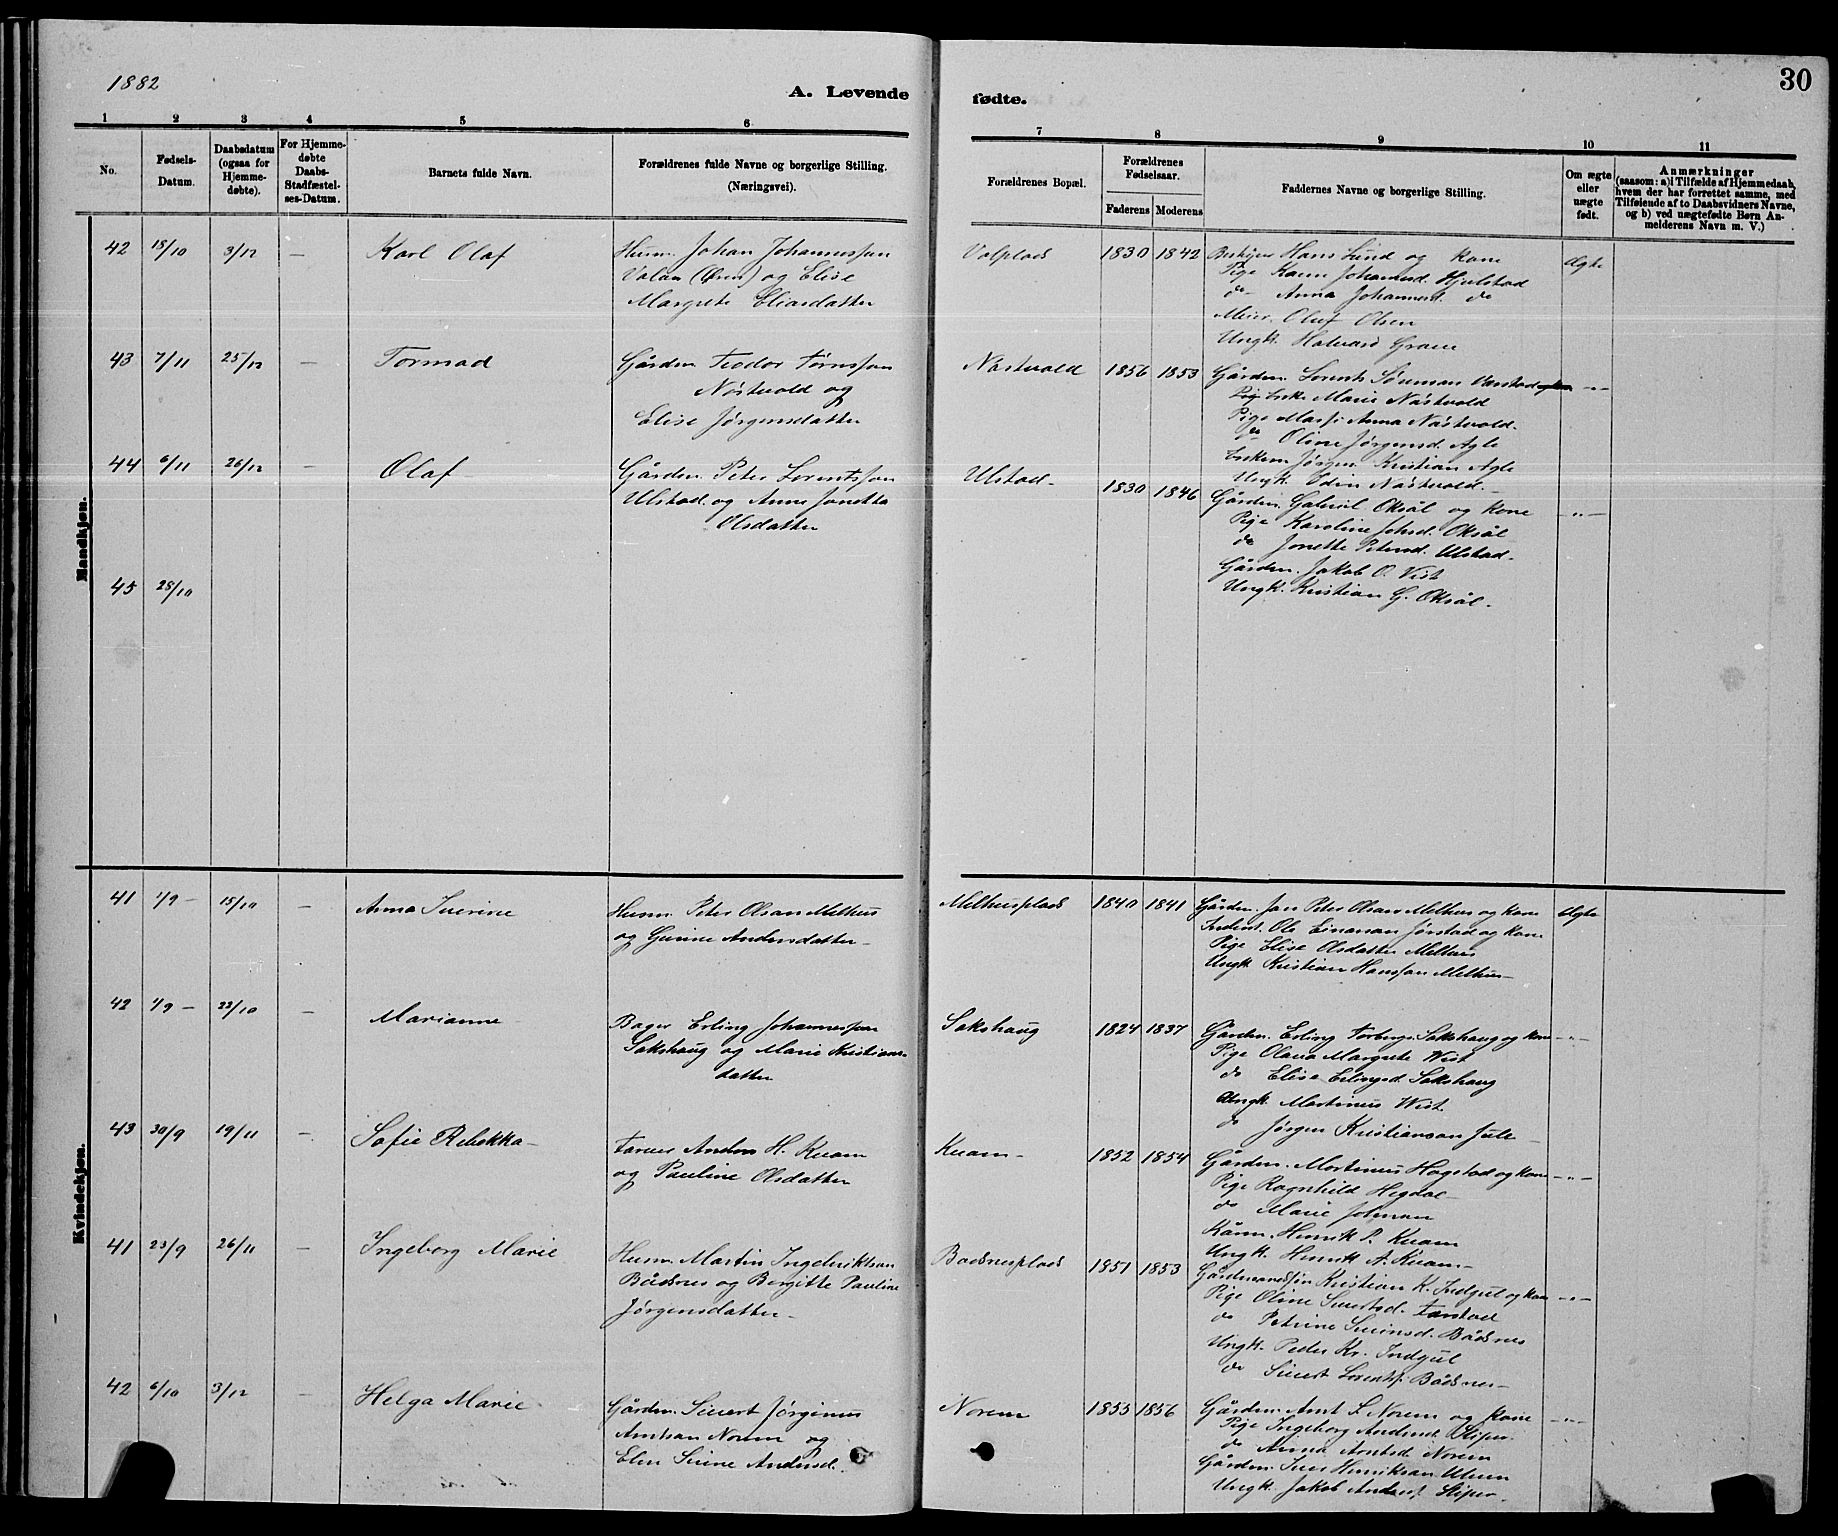 1882
A. Levende
fødte.
30
1 2 3 4 5 6 7 8 9 10 11
No.
Fødsels-
Datum.
Daabsdatum
(ogsaa for
Hjemme-
døbte).
For Hjemme-
døbte
Daabs-
Stadfæstel-
ses-Datum.
Barnets fulde Navn.
Forældrenes fulde Navne og borgerlige Stilling.
(Næringsvei).
Forældrenes Bopæl.
Forældrenes
Fødselsaar.
Faderens
Moderens
Faddernes Navne og borgerlige Stilling.
Om ægte
eller
uægte
født.
Anmærkninger
(saasom: a) i Tilfælde af Hjemmedaab,
hvem der har forrettet samme, med
Tilføiende af to Daabsvidners Navne,
og b) ved uægtefødte Børn An-
melderens Navn m. V.)
Mandkjøn.
42 15/10 3/12 — Karl Olaf
Husm. Johan Johannessen
Valan (Øren) og Elise
Margrete Eliasdatter
Valplads 1830 1842
Hans Lund og kone
Pige Karen Johannesd. Hjelstad
do Anna Johannesd. do
Meier Oluf Olsen
Ungk. Halvard Grane
Ægte
43 7/11 25/12 — Tormod
Gårdm. Teodor Tørrissen
Nöstvold og
Elise Jørgensdatter
Nöstvold 1856 1853
Gårdm. Lorents
Enke Marie Nöstvold
Pige Anna Nöstvold
do Oline Jørgensd. Agle
Enkem. Jørgen Kristian Agle
Ungk. Edin Nöstvold
-"-
44 6/11 26/12 — Olaf
Gårdm. Peter Lorentssen
Ulstad og Anne Jonetta
Olsdatter
Ulstad 1830 1846
Gårdm. Gabriel Oksål og kone
Pige Karoline Johsd. Oksål
do Jonette Petersd. Ulstad
Gårdm. Jakob O. Vist
Ungk. Kristian G. Oksål.
-"-
45 28/10
Kvindekjøn.
41 1/9 15/10 — Anna Suerine
Husm. Peter Olsen Melhus
og Gurine Andersdatter
Melhusplads 1840 1841
Gårdm. Jan Peter Olsen Melhus og kone
Inderst. Ole Einarsen Jørstad og kone
Pige Elise Olsdatter Melhus
Ungk. Kristian Hanssen Melhus
Ægte
42 1/9 22/10 — Marianne
Bager Erling Johannessen
Sakshaug og Marie Kristians-
datter
Sakshaug 1824 1837
Gårdm. Erling Torbergs. Sakshaug og kone
Pige Olava Margrete Vist
do Elise Erlingsd. Sakshaug
Ungk. Martinus Wist
do Jørgen Kristiansen Jule
-"-
43 30/9 19/11 — Sofie Rebekka
Anders H. Kuam
og Pauline Olsdatter
Kuam 1852 1854
Gårdm. Martinus Hogstad og kone
Pige Ragnhild Hegdal
do Marie Johnsen
Kårm. Henrik P. Kuam
Ungk. Henrik A. Kuam
-"-
41 23/9 26/11 — Ingeborg Marie
Husm. Martin Ingebriktsen
Bådsnes og Bergitte Pauline
Jørgensdatter
Baadsnesplads 1851 1853
Kristian K. Indgul og kone
Pige Oline Sivertsd.
do Petrine Suensd. Bådsnes
Ungk. Peder Kr. Indgul
do Sivert Lorents. Bådsnes
-"-
42 6/10 3/12 — Helga Marie
Gårdm. Sivert Jørginus
Arntsen Norem og
Elen Serine Andersd.
Norem 1855 1856
Gårdm. Arnt S. Norem og kone
Pige Ingeborg Andersd. Stiper
do Anna Arntsd. Norem
Gårdm. Iver Henriksen
Ungk. Jakob Anders. Stiper
-"-